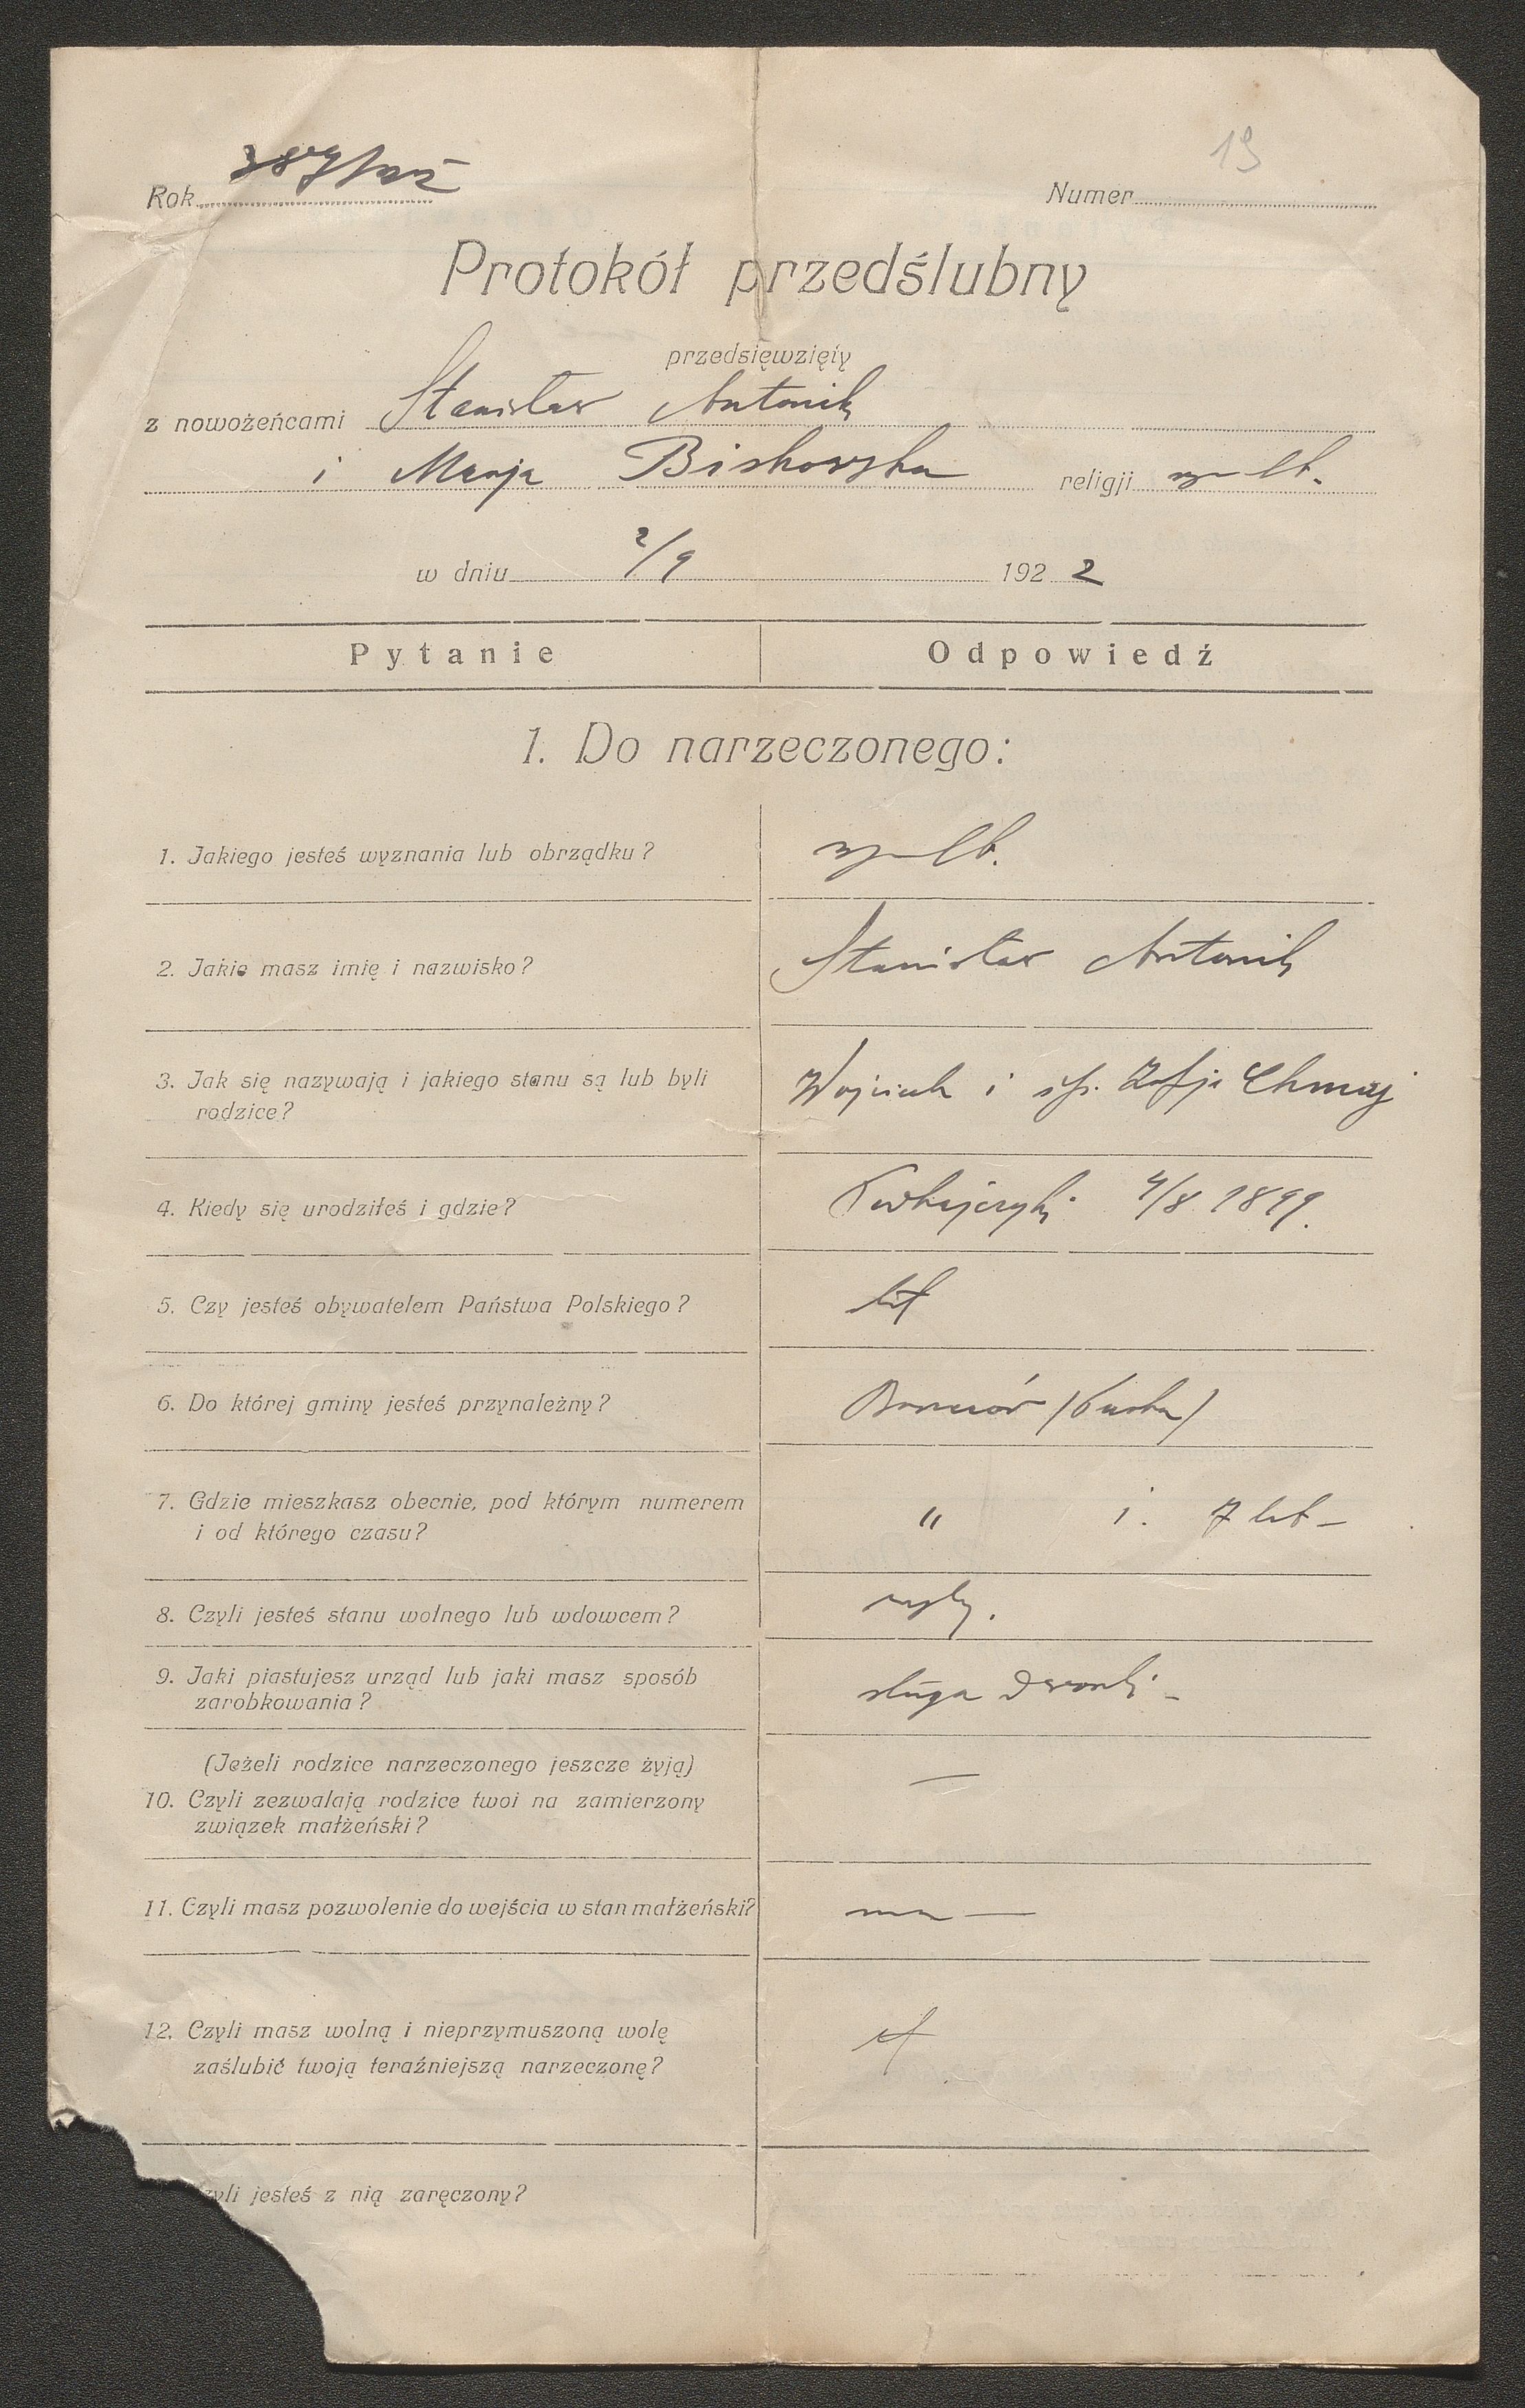 19
Rok
Numer
Protokół przedślubny
przedsięwzięty
z nowożeńcami Stanisław Antonik
i Marja Biskowska religji
w dniu 2/9 192 2
Pytanie Odpowiedź
1. Do narzeczonego:
1. Jakiego jesteś wyznania lub obrządku?
2. Jakie masz imię i nazwisko? Stanisław Antonik
3. Jak się nazywają i jakiego stanu są lub byli Wojciech i śp. Zofja Chmaj
rodzice?
4. Kiedy się urodziłeś i gdzie? 4/8 1899.
5. Czy jesteś obywatelem Państwa Polskiego?
6. Do której gminy jesteś przynależny?
7. Gdzie mieszkasz obecnie, pod którym numerem " i. 7 lat –
i od którego czasu?
8. Czyli jesteś stanu wolnego lub wdowcem?
9. Jaki piastujesz urząd lub jaki masz sposób sługa dworski –
zarobkowania?
(Jeżeli rodzice narzeczonego jeszcze żyją) —
10. Czyli zezwalają rodzice twoi na zamierzony
związek małżeński?
11. Czyli masz pozwolenie do wejścia w stan małżeński? ma —
12. Czyli masz wolną i nieprzymuszoną wolę
zaślubić twoją teraźniejszą narzeczonę?
zyli jesteś z nią zaręczony?